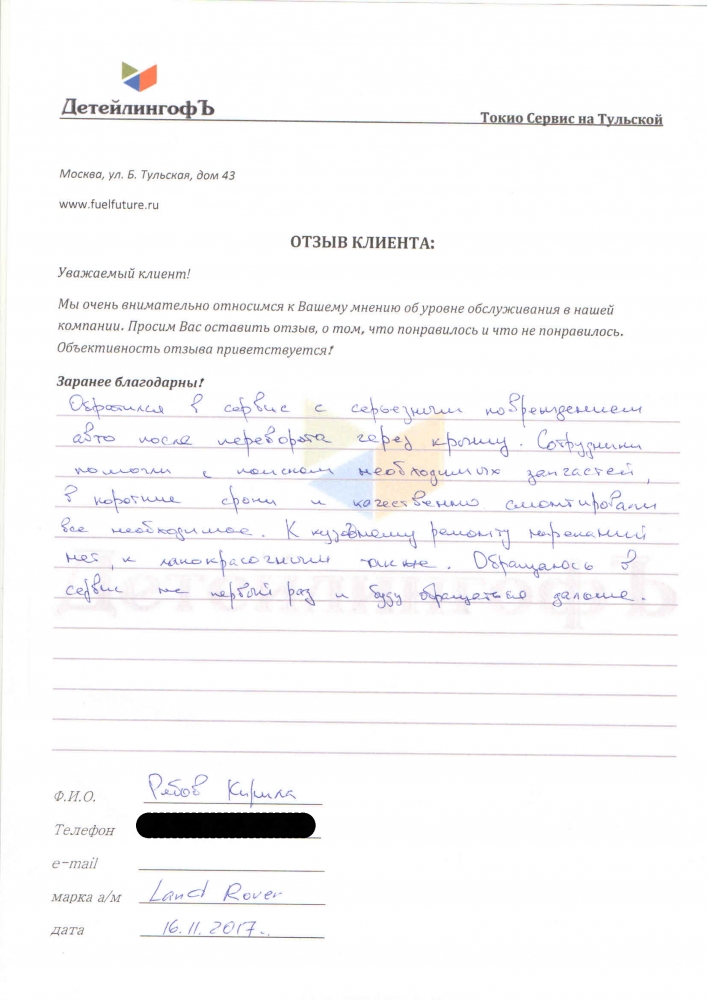 ДетейлингофЪ
Токио Сервис на Тульской
Москва, ул. Б. Тульская, дом 43
www.fuelfuture.ru
ОТЗЫВ КЛИЕНТА:
Уважаемый клиент!
Мы очень внимательно относимся к Вашему мнению об уровне обслуживания в нашей
компании. Просим Вас оставить отзыв, о том, что понравилось и что не понравилось.
Объективность отзыва приветствуется!
Заранее благодарны!
Обратился в сервис с серьезным повреждением
авто после переворота через крышу. Сотрудники
помогли с поиском необходимых запчастей,
в короткие сроки и качественно смонтировали
все необходимое. К кузовному ремонту нареканий
нет, к лакокрасочным также. Обращаюсь в
сервис не первый раз и буду обращаться дальше.
Ф.И.О. Рябов Кирилл
Телефон
e-mail
марка а/м Land Rover
дата 16.11.2017.